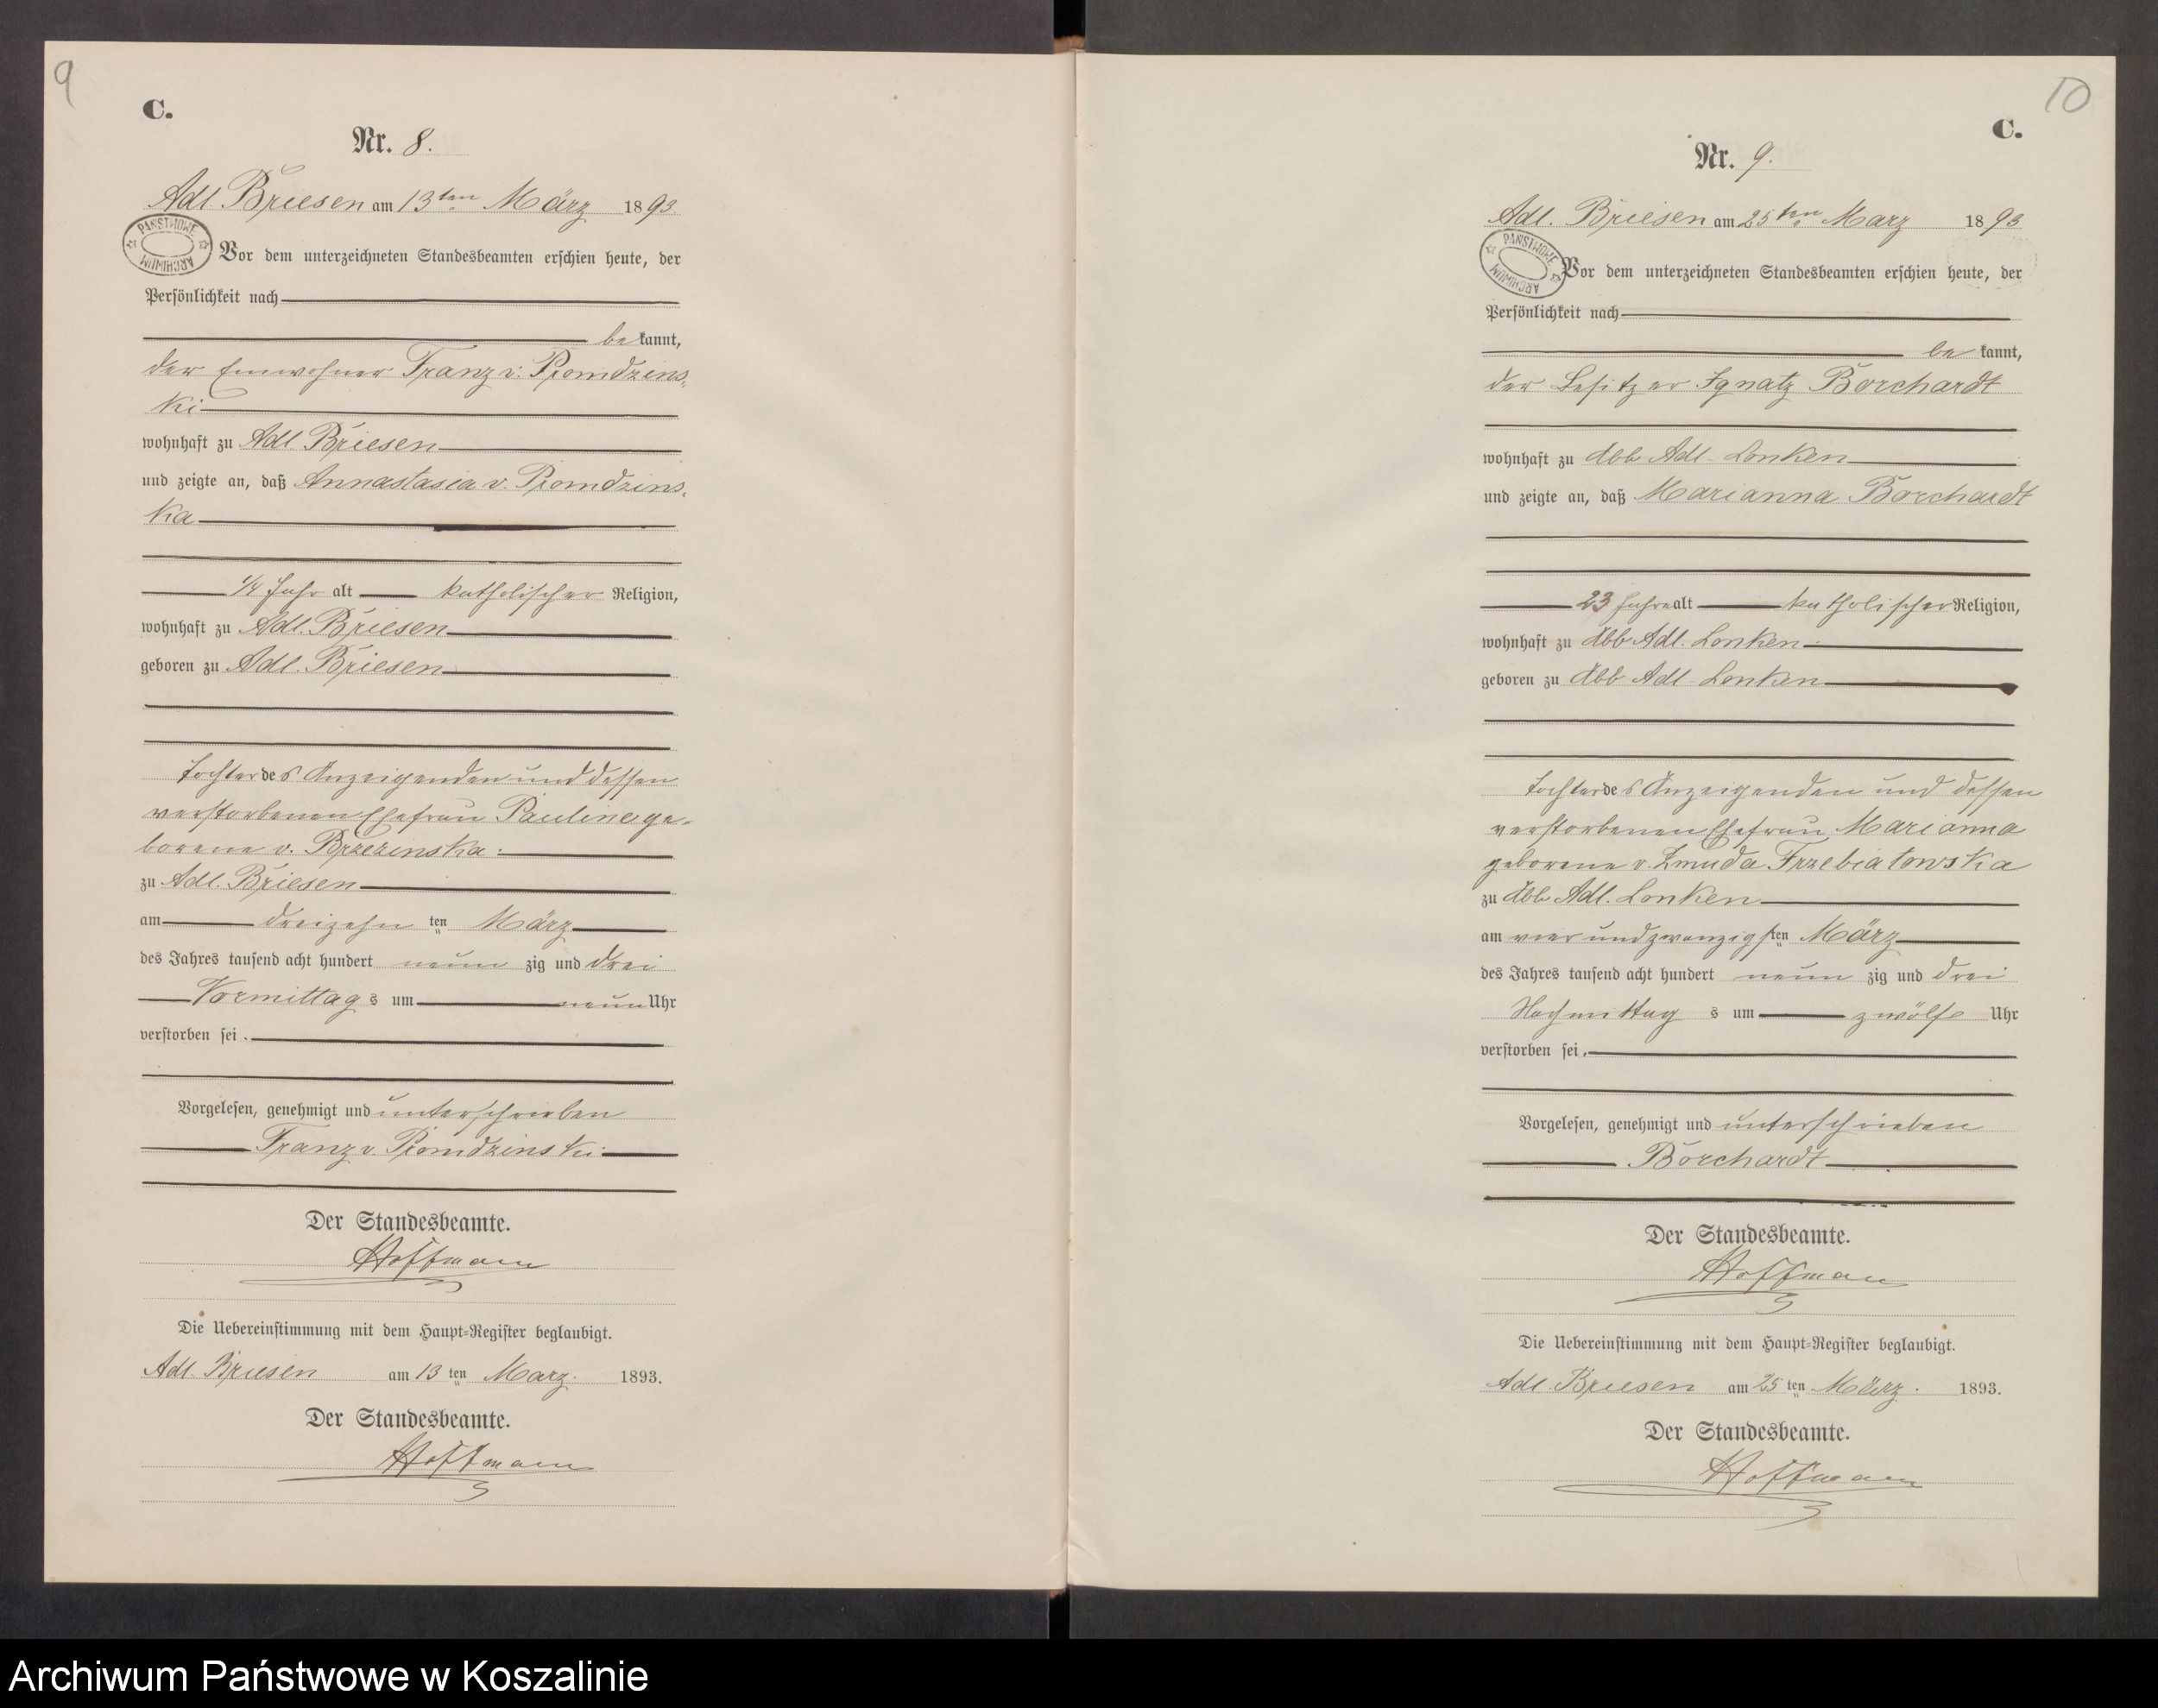 9
C.
Nr. 8.
Adl. Briesen am 13ten März 1893.
PAŃSTWOWE ARCHIWUM
Vor dem unterzeichneten Standesbeamten erschien heute, der
Persönlichkeit nach
be kannt,
der Einwohner Franz v. Piomdzins-
ki
wohnhaft zu Adl. Briesen
und zeigte an, daß Annastasia v. Piomdzins-
ka
1/4 Jahr alt katholischer Religion,
wohnhaft zu Adl. Briesen
geboren zu Adl. Briesen
Tochter des Anzeigenden und dessen
verstorbenen Ehefrau Pauline ge-
borene v. Brzezinska.
zu Adl. Briesen
am dreizehn ten März
des Jahres tausend acht hundert neun zig und drei
Vormittag s um neun Uhr
verstorben sei.
Vorgelesen, genehmigt und unterschrieben
Franz v. Piomdzinski.
Der Standesbeamte.
Hoffmann
Die Uebereinstimmung mit dem Haupt-Register beglaubigt.
Adl. Briesen am 13 ten März. 1893.
Der Standesbeamte.
Hoffmann
10
C.
Nr. 9.
Adl. Briesen am 25ten März 1893
PAŃSTWOWE ARCHIWUM
Vor dem unterzeichneten Standesbeamten erschien heute, der
Persönlichkeit nach
be kannt,
der Besitzer Ignatz Borchardt
wohnhaft zu Abb Adl. Lonken
und zeigte an, daß Marianna Borchardt
23 Jahre alt katholischer Religion,
wohnhaft zu Abb Adl. Lonken
geboren zu Abb Adl. Lonken
Tochter des Anzeigenden und dessen
verstorbenen Ehefrau Marianna
geborene v. Zmuda Trzebiatowska
zu Abb Adl. Lonken
am vier und zwanzigsten März
des Jahres tausend acht hundert neun zig und drei
Nachmittag s um zwölf Uhr
verstorben sei.
Vorgelesen, genehmigt und unterschrieben
Borchardt
Der Standesbeamte.
Hoffmann
Die Uebereinstimmung mit dem Haupt-Register beglaubigt.
Adl Briesen am 25 ten März. 1893.
Der Standesbeamte.
Hoffmann
Archiwum Państwowe w Koszalinie